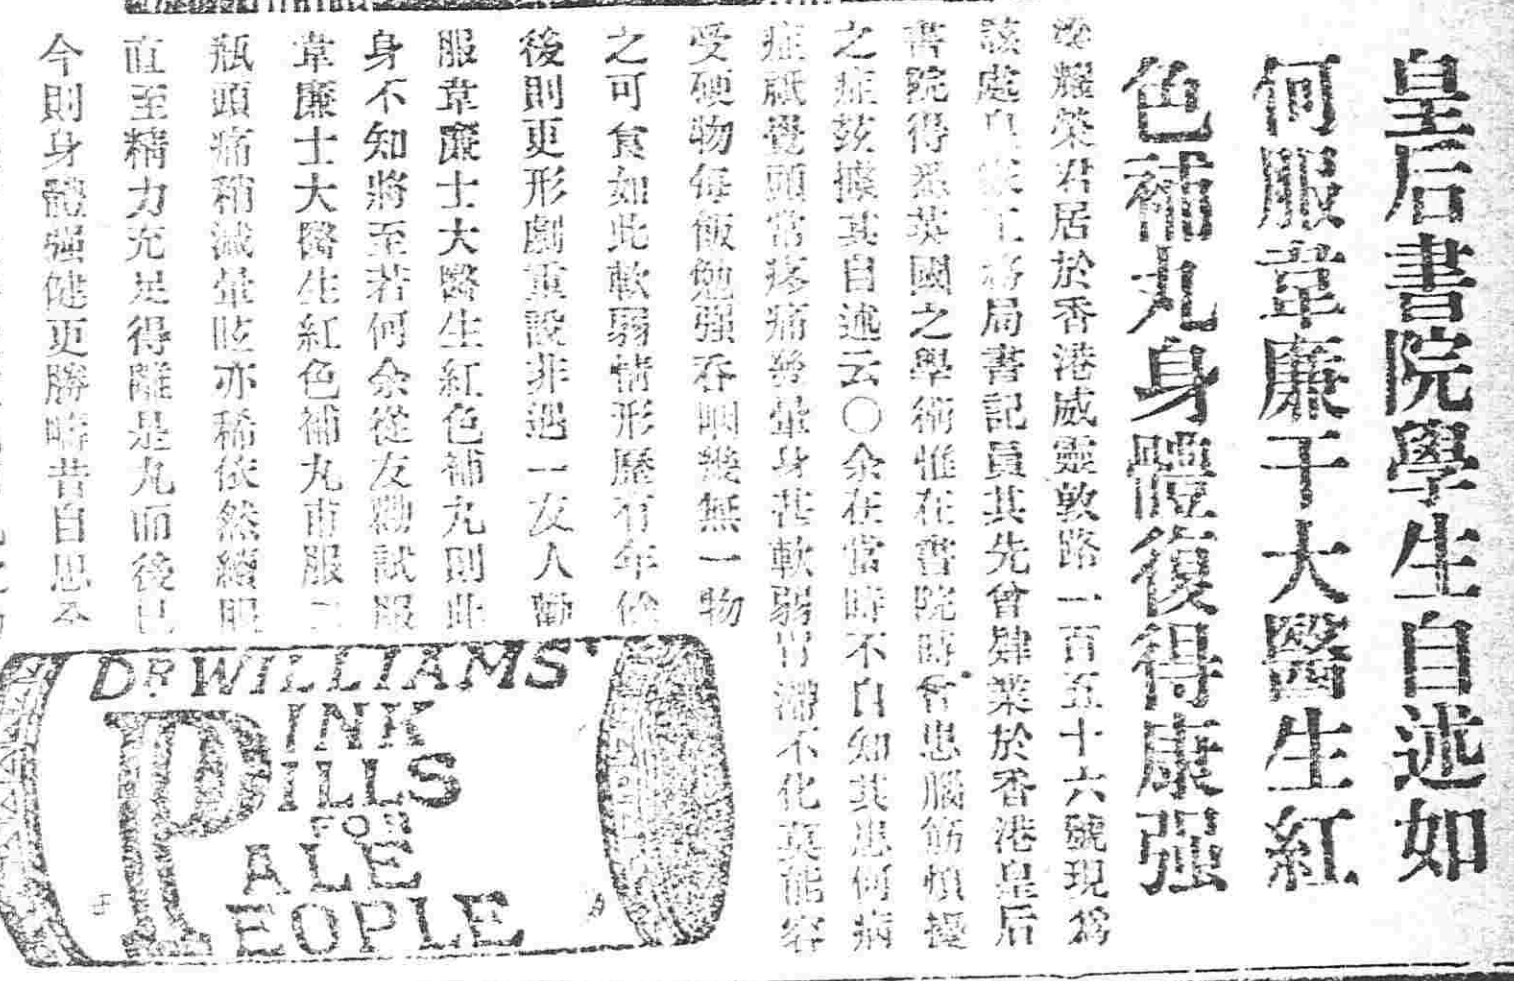 皇后書院學生自述如
何服韋廉干大醫生紅
色補丸身體復得康强
耀榮君居於香港威靈敦路一百五十六號現爲
該處皇家工務局書記員其先曾肄業於香港皇后
書院得悉英國之學術惟在書院時曾患腦筋煩擾
之症茲據其自述云〇余在當時不自知其患何病
症祇覺頭常疼痛發暈身甚軟弱胃滯不化莫能容
受硬物每飯勉强吞咽幾無一物
之可食如此軟弱情形歷有年
後則更形劇重設非遇一友人勸
服韋廉士大醫生紅色補丸則此
身不知將至若何余從友勸試服
韋廉士大醫生紅色補丸甫服二
瓶頭痛稍減暈眩亦稀依然續服
直至精力充足得離是丸而後已
今則身體强健更勝疇昔自思
DR WILLIAMS'
PINK
PILLS
FOR
PALE
PEOPLE